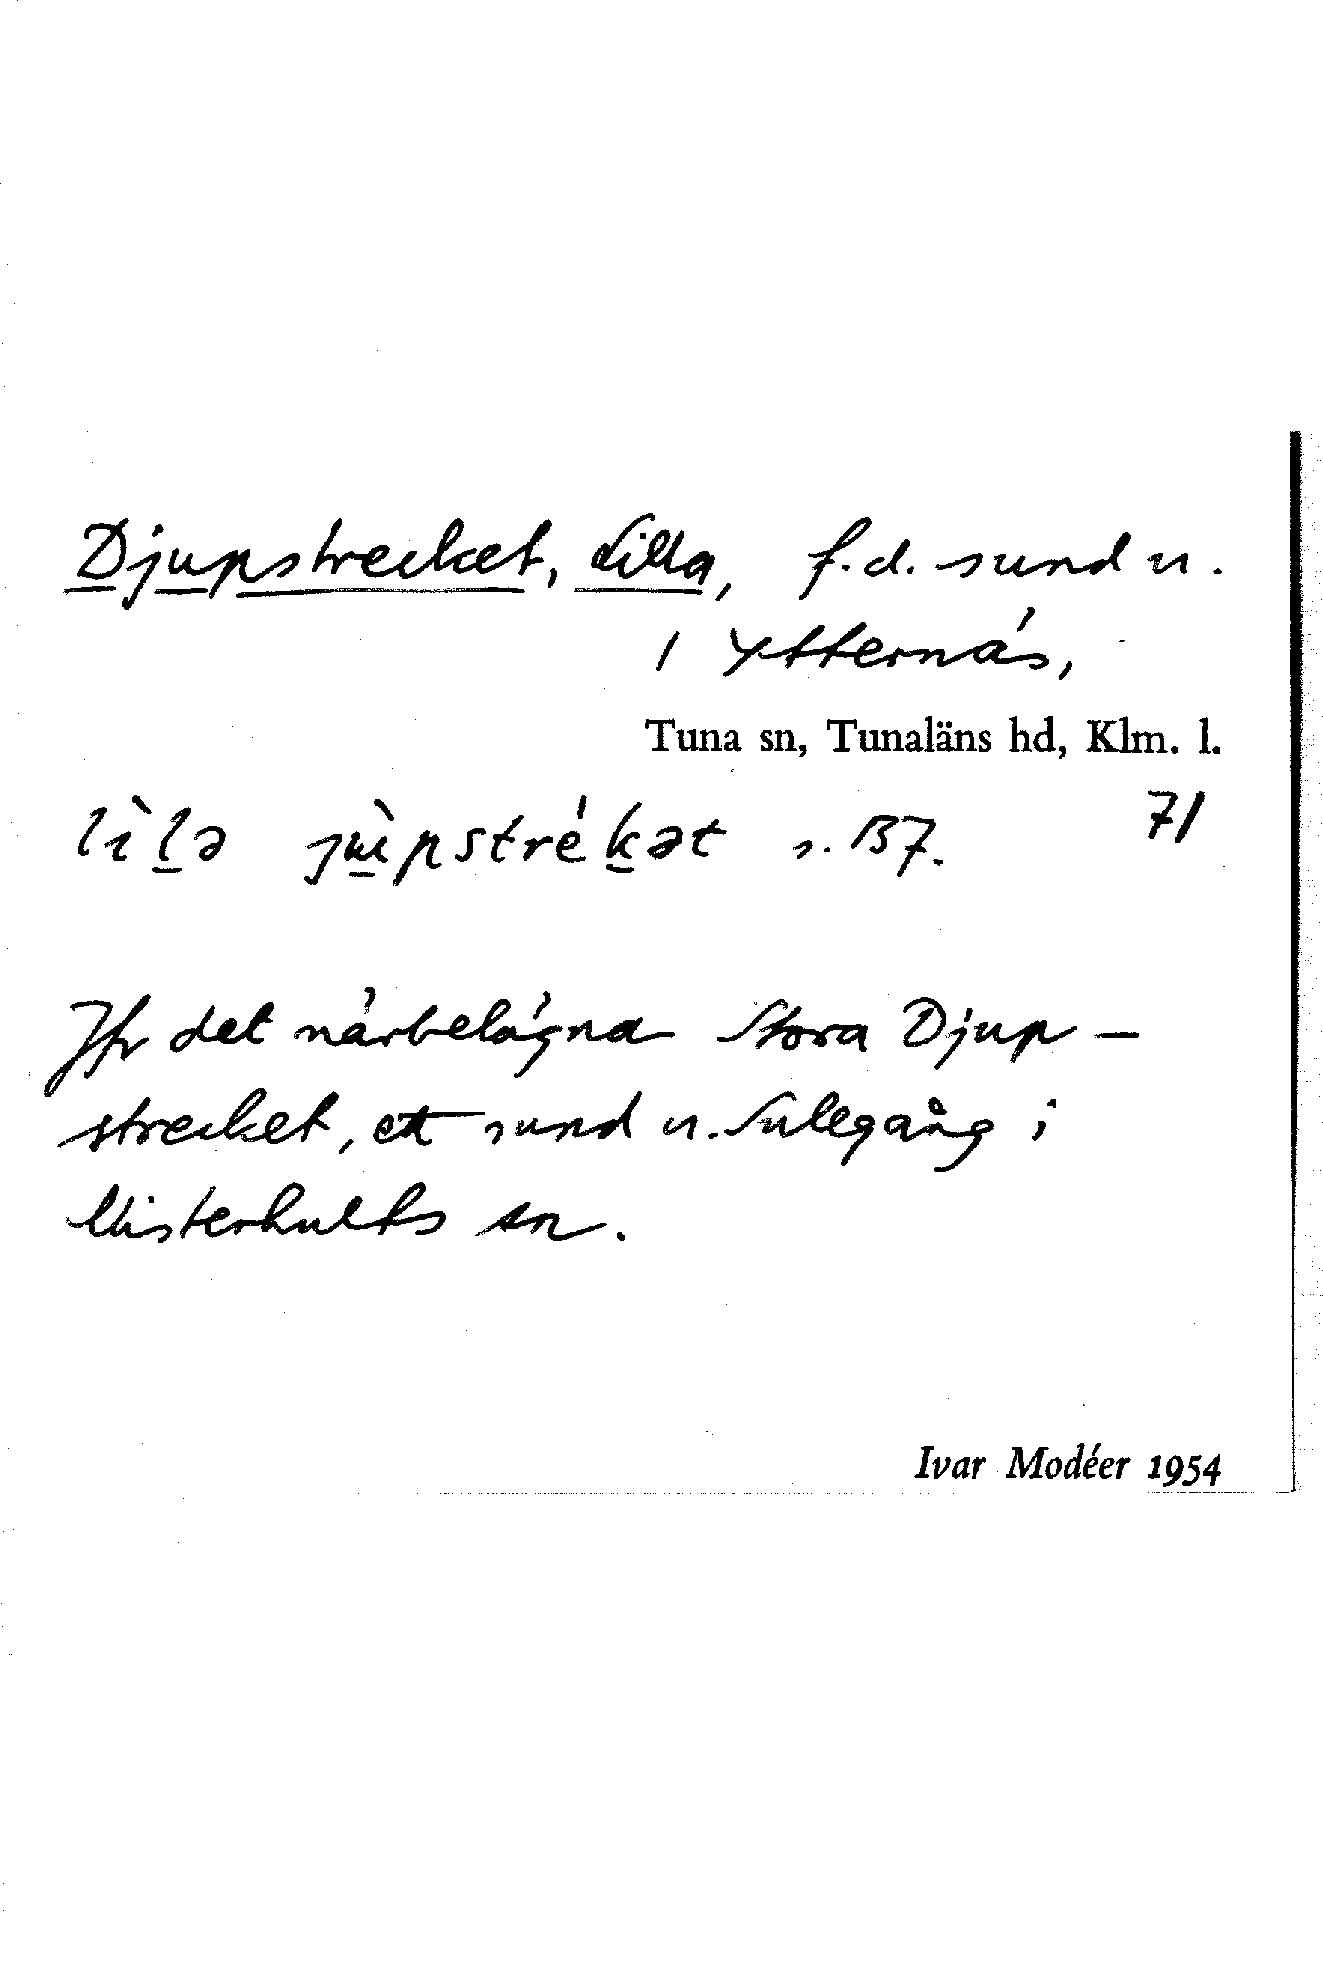 Djupstrecket, Lilla, f.d. sund u.
i Ytternäs,
Tuna sn, Tunaläns hd, Klm. l.
lìlə jùpstrékət s. B7. 71
Jfr det närbelägna Stora Djup-
strecket, ett sund u. Sulegång i
Misterhults sn.
Ivar Modéer 1954